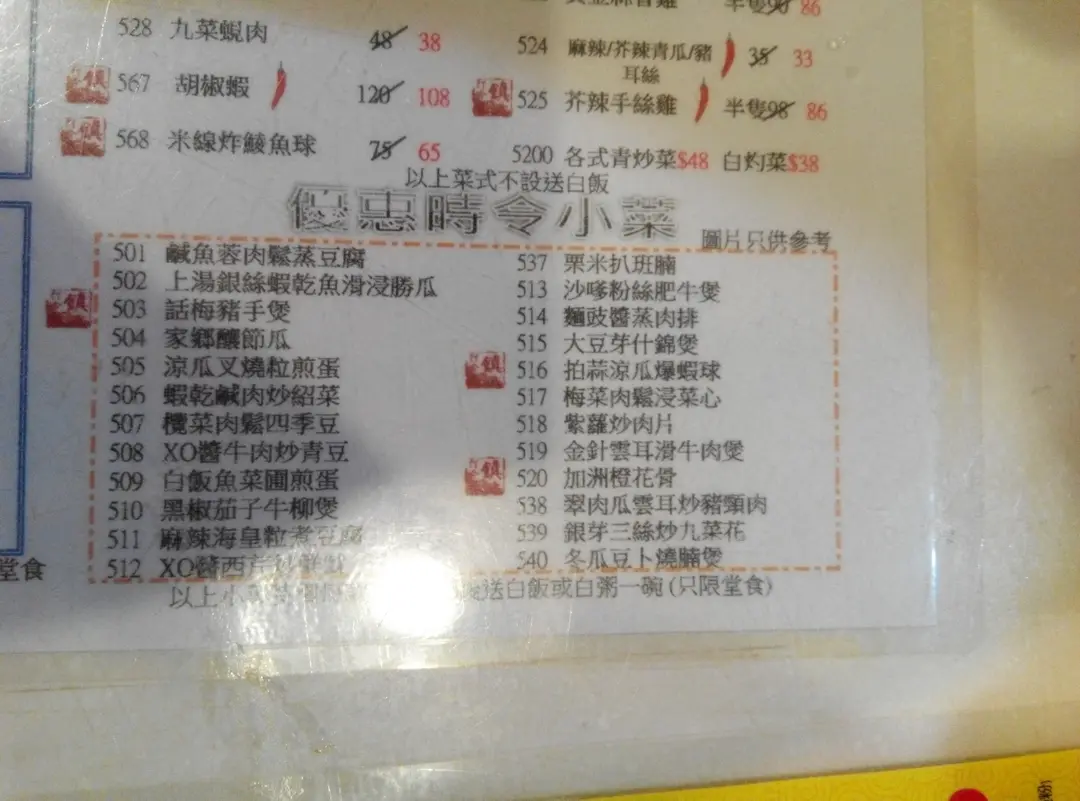 528 九菜蜆肉 48 38
567 胡椒蝦 120 108
568 米線炸鯪魚球 75 65
半隻90 86
524 麻辣/芥辣青瓜/豬 35 33
耳絲
525 芥辣手絲雞 半隻98 86
5200 各式青炒菜$48 白灼菜$38
以上菜式不設送白飯
優惠時令小菜
圖片只供參考
501 鹹魚蓉肉鬆蒸豆腐
502 上湯銀絲蝦乾魚滑浸勝瓜
鎮 503 話梅豬手煲
504 家鄉釀節瓜
505 涼瓜叉燒粒煎蛋
506 蝦乾鹹肉炒紹菜
507 欖菜肉鬆四季豆
508 XO醬牛肉炒青豆
509 白飯魚菜圃煎蛋
510 黑椒茄子牛柳煲
511 麻辣海皇粒煮豆腐
512 XO醬西芹炒
537 粟米扒班腩
513 沙嗲粉絲肥牛煲
514 麵豉醬蒸肉排
515 大豆芽什錦煲
鎮 516 拍蒜涼瓜爆蝦球
517 梅菜肉鬆浸菜心
518 紫蘿炒肉片
519 金針雲耳滑牛肉煲
鎮 520 加洲橙花骨
538 翠肉瓜雲耳炒豬頸肉
539 銀芽三絲炒九菜花
540 冬瓜豆卜燒腩煲
以上小 送白飯或白粥一碗(只限堂食)
堂食